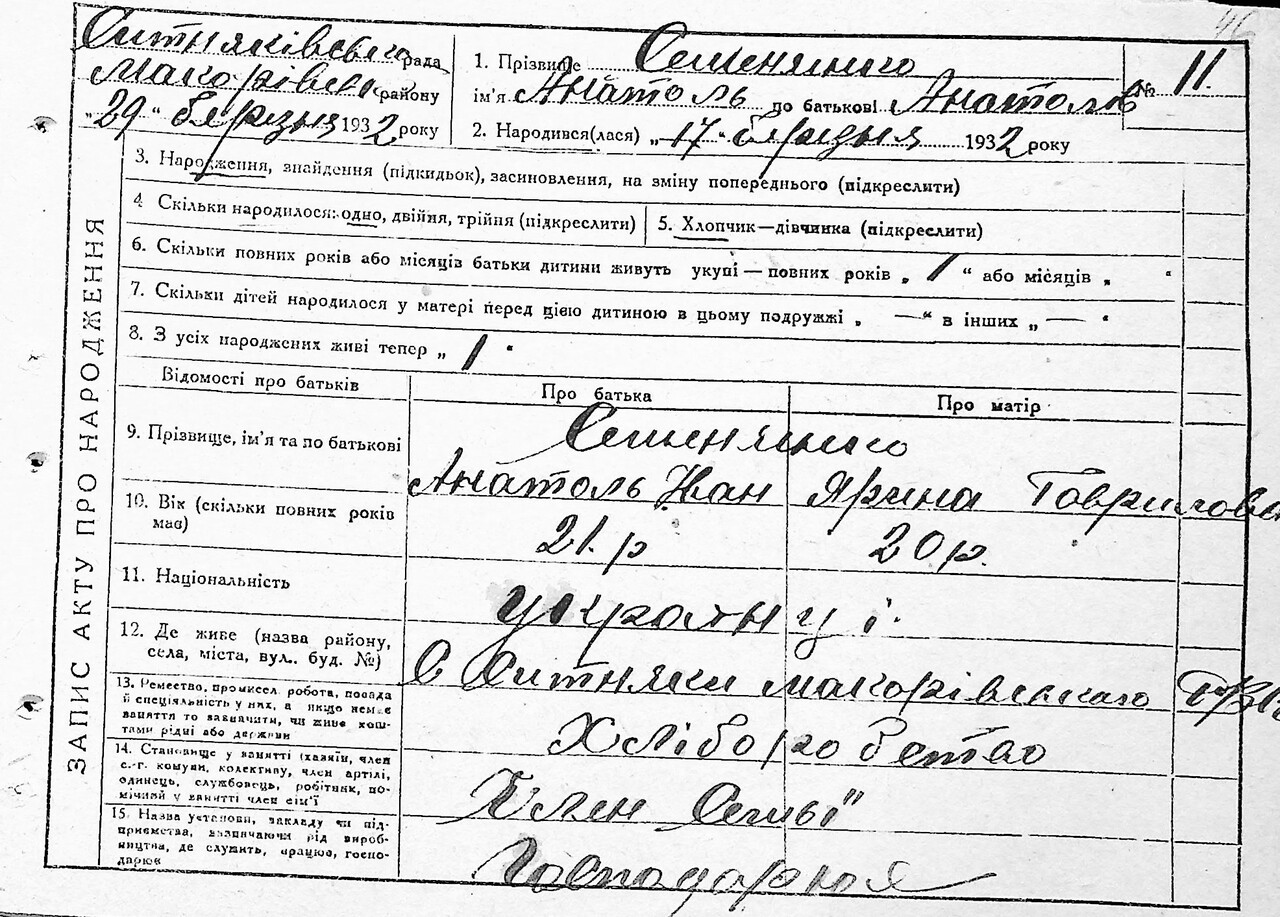 46
Ситняківська рада
Макорівськ району
"29" березня 1932 року
1. Прізвище Семеняниго
ім'я Анатоль по батькові Анатолів
№ 11.
2. Народився(лася) „17" березня 1932 року
3. Народження, знайдення (підкидьок), засиновлення, на зміну попереднього (підкреслити)
4 Скільки народилося: одно, двійня, трійня (підкреслити)
5. Хлопчик—дівчинка (підкреслити)
6. Скільки повних років або місяців батьки дитини живуть укупі — повних років „ 1 " або місяців „ "
7. Скільки дітей народилося у матері перед цією дитиною в цьому подружжі „ —" в інших „ — "
8. З усіх народжених живі тепер „ 1 "
ЗАПИС АКТУ ПРО НАРОДЖЕННЯ
Відомості про батьків
Про батька
Про матір
9. Прізвище, ім'я та по батькові
Семеняниго
Анатоль Іван Ярина Гаврилова
10. Вік (скільки повних років
має)
21.р 20р.
11. Національність
українці.
12. Де живе (назва району,
села, міста, вул. буд. №)
С Ситняки Макорівського
13. Ремество, промисел, робота, посада
й спеціяльність у них, а якщо немає
заняття то зазначити, чи живе кош-
тами рідні або держави
Хліборобство
14. Становище у занятті (хазяїн, член
с.-г. комуни, колективу, член артілі,
одинець, службовець, робітник, по-
мічний у занятті член сім'ї
Член Семьї
15. Назва установи, закладу чи під-
приємства, зазначаючи рід вироб-
ництва, де служить, працює, госпо-
дарює
Господарная